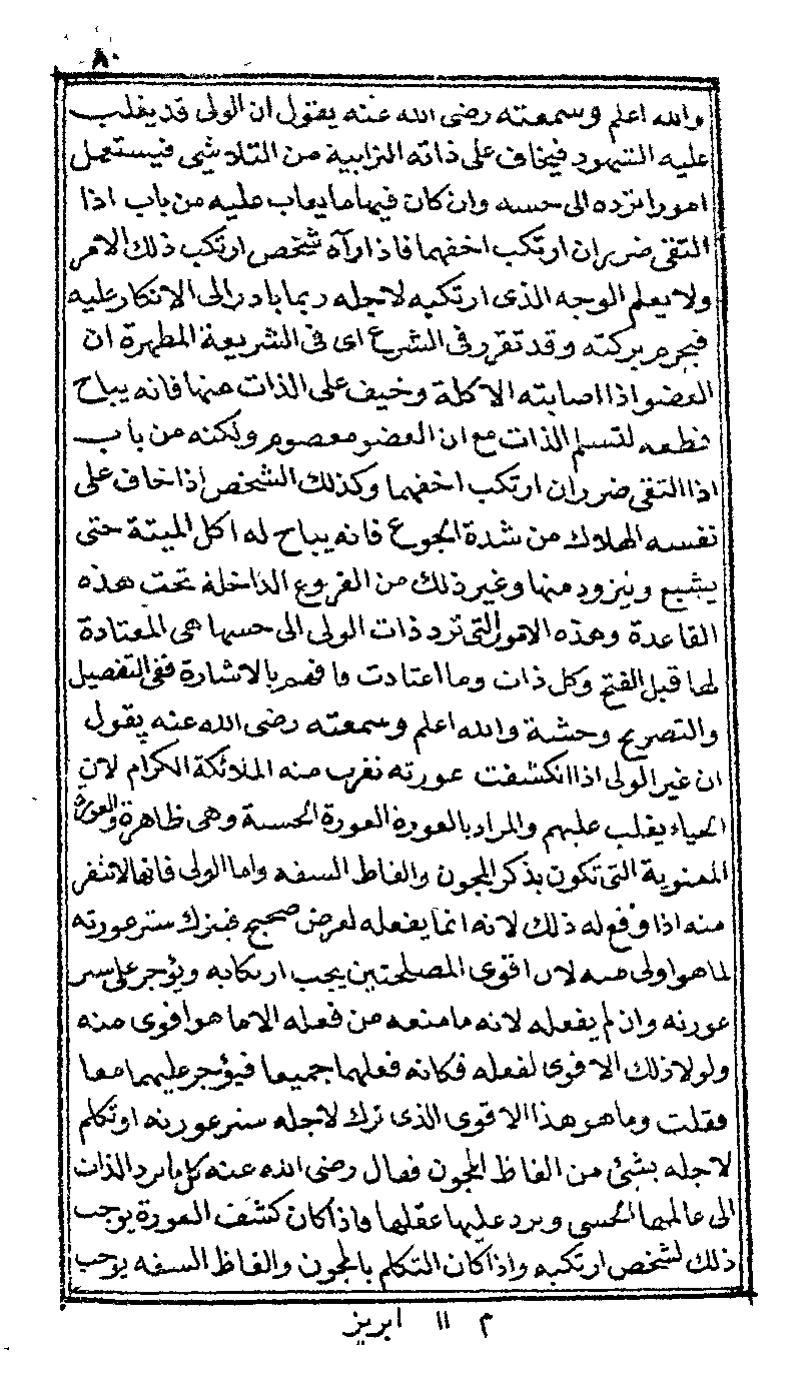 ٨٠
والله اعلم وسمعته رضى الله عنه يقول ان الولى قد يغلب
عليه الشهود فيخاف على ذاته الترابية من التلاشى فيستعمل
امورا ترده الى حسه وان كان فيها ما يعاب عليه من باب اذا
التقى ضرران ارتكب اخفهما فاذا رآه شخص ارتكب ذلك الامر
ولا يعلم الوجه الذى ارتكبه لاجله ربما بادر الى الانكار عليه
فيحرم بركته وقد تقرر فى الشرع اى فى الشريعة المطهرة ان
العضو اذا اصابته الاكلة وخيف على الذات منها فانه يباح
قطعه لتسلم الذات مع ان العضو معصوم ولكنه من باب
اذا التقى ضرران ارتكب اخفهما وكذلك الشخص اذا خاف على
نفسه الهلاك من شدة الجوع فانه يباح له اكل الميتة حتى
يشبع ويتزود منها وغير ذلك من الفروع الداخلة تحت هذه
القاعدة وهذه الامور التى ترد ذات الولى الى حسها هى المعتادة
لها قبل الفتح وكل ذات وما اعتادت فافهم بالاشارة ففى التفصيل
والتصريح وحشة والله اعلم وسمعته رضى الله عنه يقول
ان غير الولى اذا انكشفت عورته نفرت منه الملائكة الكرام لان
الحياء يغلب عليهم والمراد بالعورة العورة الحسية وهى ظاهرة والعورة
المعنوية التى تكون بذكر المجون والفاظ السفه واما الولى فانها لا تنفر
منه اذا وقع له ذلك لانه انما يفعله لغرض صحيح فيترك ستر عورته
لما هو اولى منه لان اقوى المصلحتين يجب ارتكابه ويؤجر على ستر
عورته وان لم يفعله لانه ما منعه من فعله الا ما هو اقوى منه
ولولا ذلك الاقوى لفعله فكانه فعلهما جميعا فيؤجر عليهما معا
فقلت وما هو هذا الاقوى الذى ترك لاجله ستر عورته او تكلم
لاجله بشئ من الفاظ المجون فقال رضى الله عنه كل ما يرد الذات
الى عالمها الحسى ويرد عليها عقلها فاذا كان كشف العورة يوجب
ذلك لشخص ارتكبه واذا كان التكلم بالمجون والفاظ السفه يوجب
م ١١ ابريز